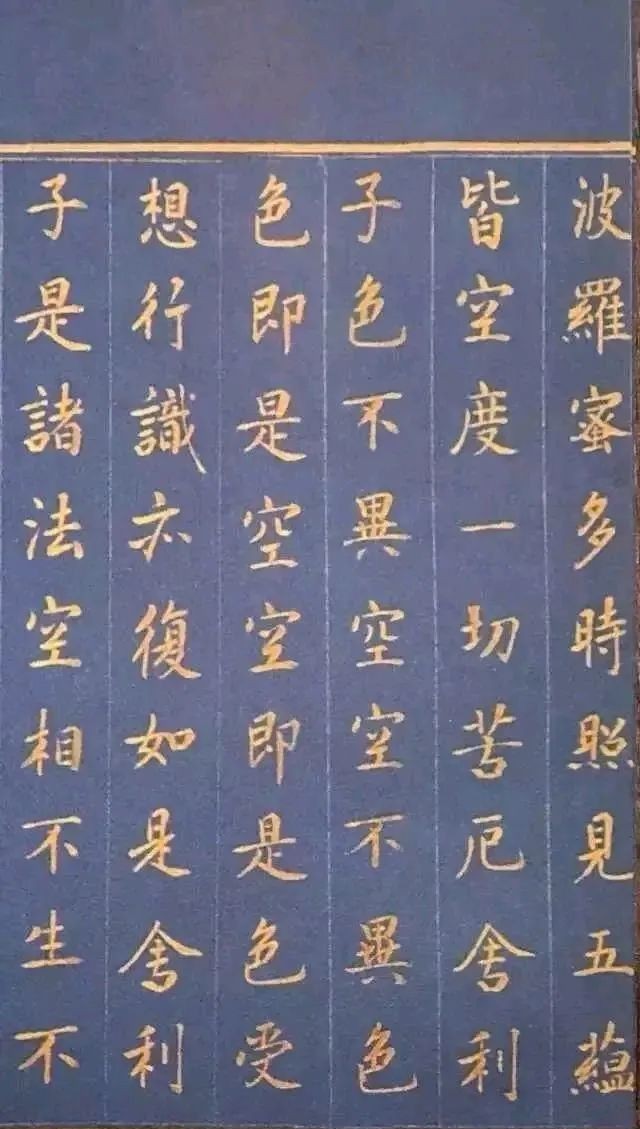 波羅蜜多時照見五蘊
皆空度一切苦厄舍利
子色不異空空不異色
色即是空空即是色受
想行識亦復如是舍利
子是諸法空相不生不